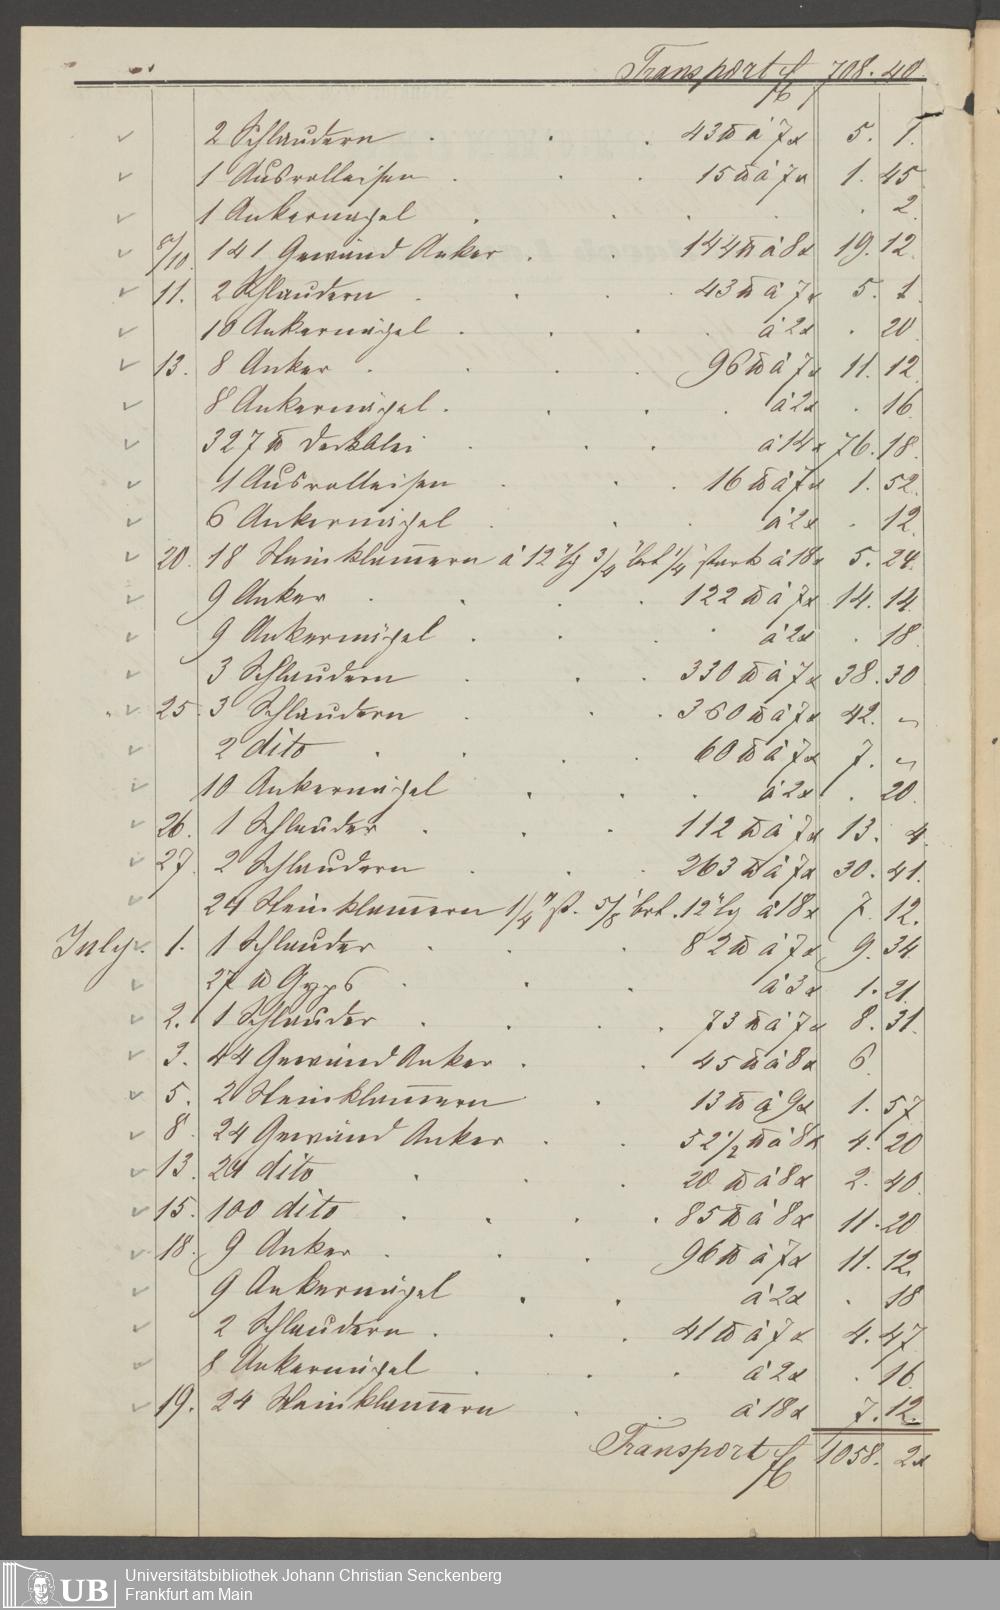 Transport f 708. 40
2 Schlaudern . . . 43 ℔ á 7x 5. 1.
1 Ausrolleisen . . . 15 ℔ á 7x 1. 45
1 Ankernagel . . . . . 2.
8/10. 141 Gewänd Anker . . 144 ℔ á 8x 19. 12.
11. 2 Schlaudern . . . 43 ℔ á 7x 5. 1.
10 Ankernägel . . . . á 2x . 20
13. 8 Anker . . . . 96 ℔ á 7x 11. 12
8 Ankernägel . . . . á 2x . 16
327 ℔ Deckblei . . . á 14x 76. 18.
1 Ausrolleisen . . . 16 ℔ á 7x 1. 52.
6 Ankernägel . . . á 2x . 12.
20. 18 Steinklam̅ern á 12" lg 3/4" brt 1/4" stark á 18x 5. 24.
9 Anker . . . . 122 ℔ á 7x 14. 14.
9 Ankernägel . . . . á 2x . 18
3 Schlaudern . . . 330 ℔ á 7x 38. 30
25. 3 Schlaudern . . . 360 ℔ á 7x 42. "
2 dito . . . 60 ℔ á 7x 7. "
10 Ankernägel . . . á 2x . 20.
26. 1 Schlauder . . . 112 ℔ á 7x 13. 4.
27. 2 Schlaudern . . . 263 ℔ á 7x 30. 41.
24 Steinklam̅ern 1/4" st. 5/8" brt. 12" lg á 18x 7. 12.
July. 1. 1 Schlauder . . . 82 ℔ á 7x 9. 34.
27 ℔ Gyps . . . á 3x 1. 21.
2. 1 Schlauder . . . . 73 ℔ á 7x 8. 31.
3. 44 Gewänd Anker . . 45 ℔ á 8x 6.
5. 2 Steinklam̅ern . 13 ℔ á 9x 1. 57
8. 24 Gewänd Anker . . 52 1/2 ℔ á 8x 4. 20
13. 24 dito . . . 20 ℔ á 8x 2. 40.
15. 100 dito . . . . 85 ℔ á 8x 11. 20
18. 9 Anker . . . 96 ℔ á 7x 11. 12.
9 Ankernägel . . á 2x . 18
2 Schlaudern . . . 41 ℔ á 7x 4. 47
8 Ankernägel . . . á 2x . 16.
19. 24 Steinklam̅ern . . á 18x 7. 12.
Transport f 1058. 2x
UB Universitätsbibliothek Johann Christian Senckenberg
Frankfurt am Main